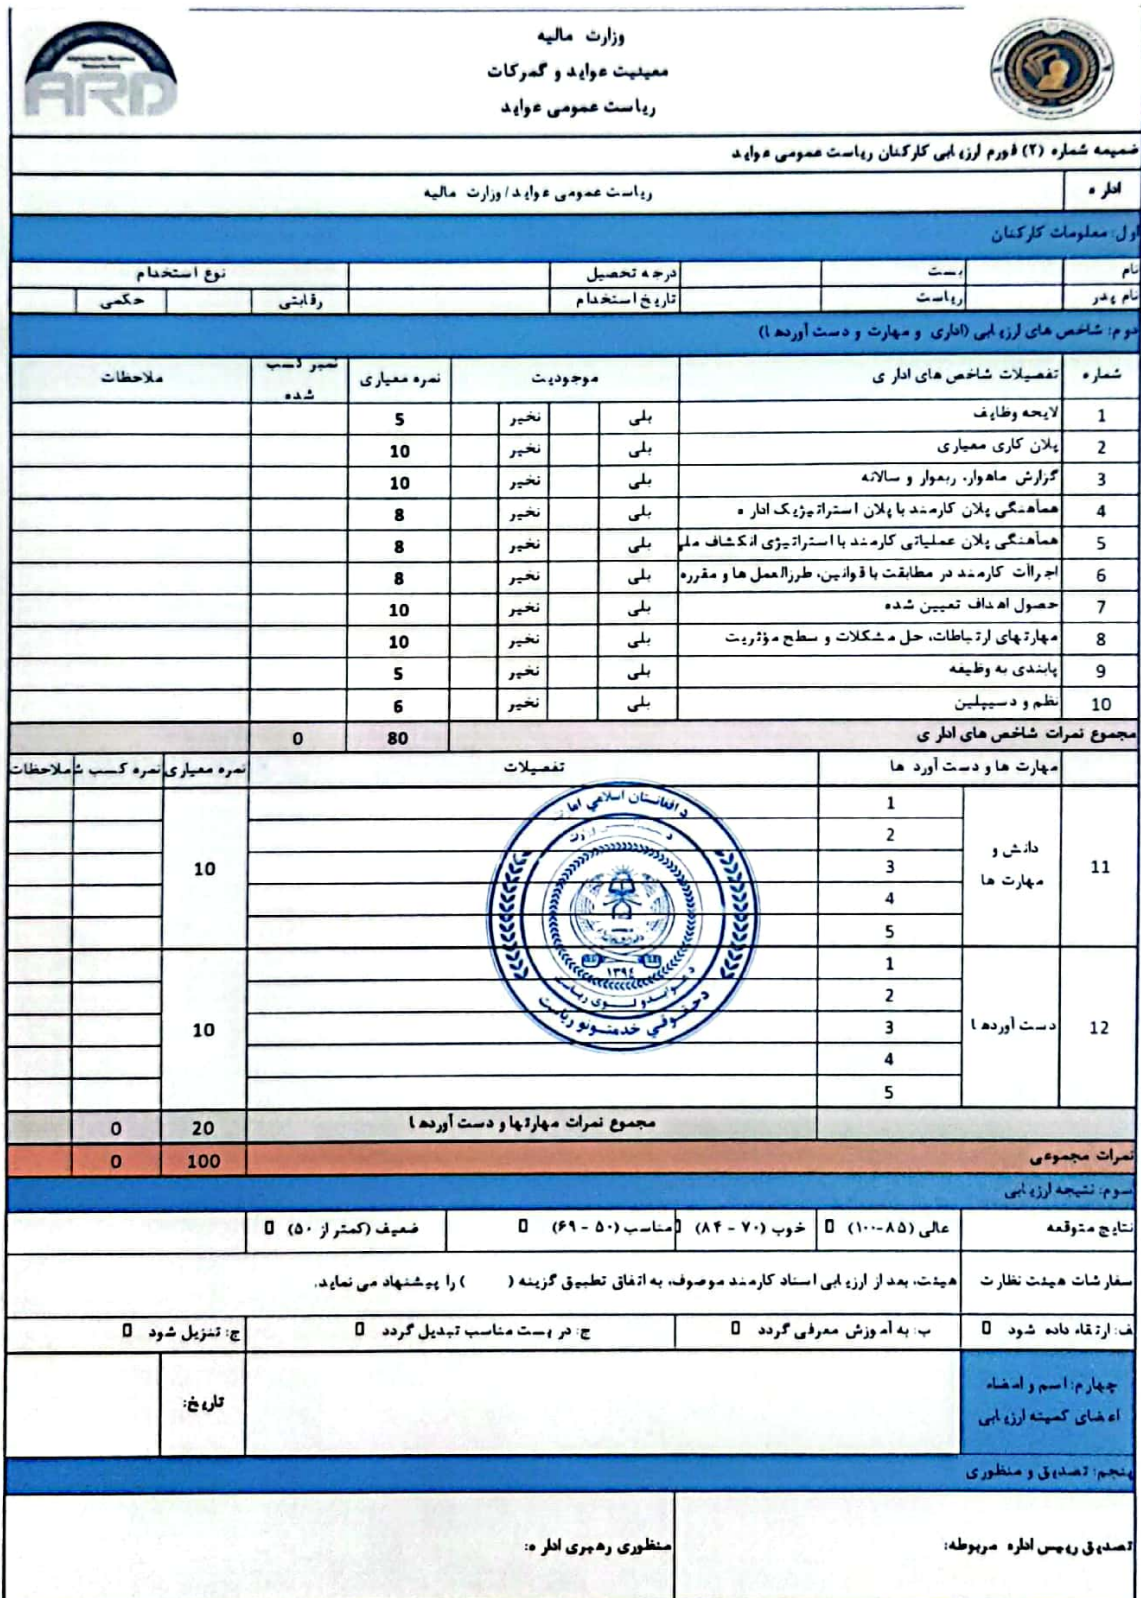 Afghanistan Revenue Department
ARD
وزارت مالیه
معینیت عواید و گمرکات
ریاست عمومی عواید
ضمیمه شماره (۲) فورم ارزیابی کارکنان ریاست عمومی عواید
اداره
ریاست عمومی عواید/وزارت مالیه
اول: معلومات کارکنان
نام بست درجه تحصیل نوع استخدام
نام پدر ریاست تاریخ استخدام رقابتی حکمی
دوم: شاخص های ارزیابی (اداری و مهارت و دست آوردها)
شماره تفصیلات شاخص های اداری موجودیت نمره معیاری نمبر کسب شده ملاحظات
1 لایحه وظایف بلی نخیر 5
2 پلان کاری معیاری بلی نخیر 10
3 گزارش ماهوار، ربعوار و سالانه بلی نخیر 10
4 همآهنگی پلان کارمند با پلان استراتیژیک اداره بلی نخیر 8
5 همآهنگی پلان عملیاتی کارمند با استراتیژی انکشاف ملی بلی نخیر 8
6 اجراآت کارمند در مطابقت با قوانین، طرزالعمل ها و مقرره بلی نخیر 8
7 حصول اهداف تعیین شده بلی نخیر 10
8 مهارتهای ارتباطات، حل مشکلات و سطح مؤثریت بلی نخیر 10
9 پابندی به وظیفه بلی نخیر 5
10 نظم و دسیپلین بلی نخیر 6
مجموع نمرات شاخص های اداری 80 0
مهارت ها و دست آورد ها تفصیلات نمره معیاری نمره کسب ش ملاحظات
11 دانش و مهارت ها 10
1
2
3
4
5
12 دست آوردها 10
1
2
3
4
5
د افغانستان اسلامي امارت
وزارت
۱۳۹٤
د عوایدو لوی ریاست
د حقوقي خدمتونو ریاست
مجموع نمرات مهارتها و دست آوردها 20 0
نمرات مجموعی 100 0
سوم: نتیجه ارزیابی
نتایج متوقعه عالی (۸۵-۱۰۰) خوب (۷۰ - ۸۴) مناسب (۵۰ - ۶۹) ضعیف (کمتر از ۵۰)
سفارشات هیئت نظارت هیئت، بعد از ارزیابی اسناد کارمند موصوف، به اتفاق تطبیق گزینه ( ) را پیشنهاد می نماید.
ف: ارتقاء داده شود ب: به آموزش معرفی گردد ج: در بست مناسب تبدیل گردد چ: تنزیل شود
چهارم: اسم و امضاء
اعضای کمیته ارزیابی
تاریخ:
پنجم: تصدیق و منظوری
تصدیق رییس اداره مربوطه: منظوری رهبری اداره: